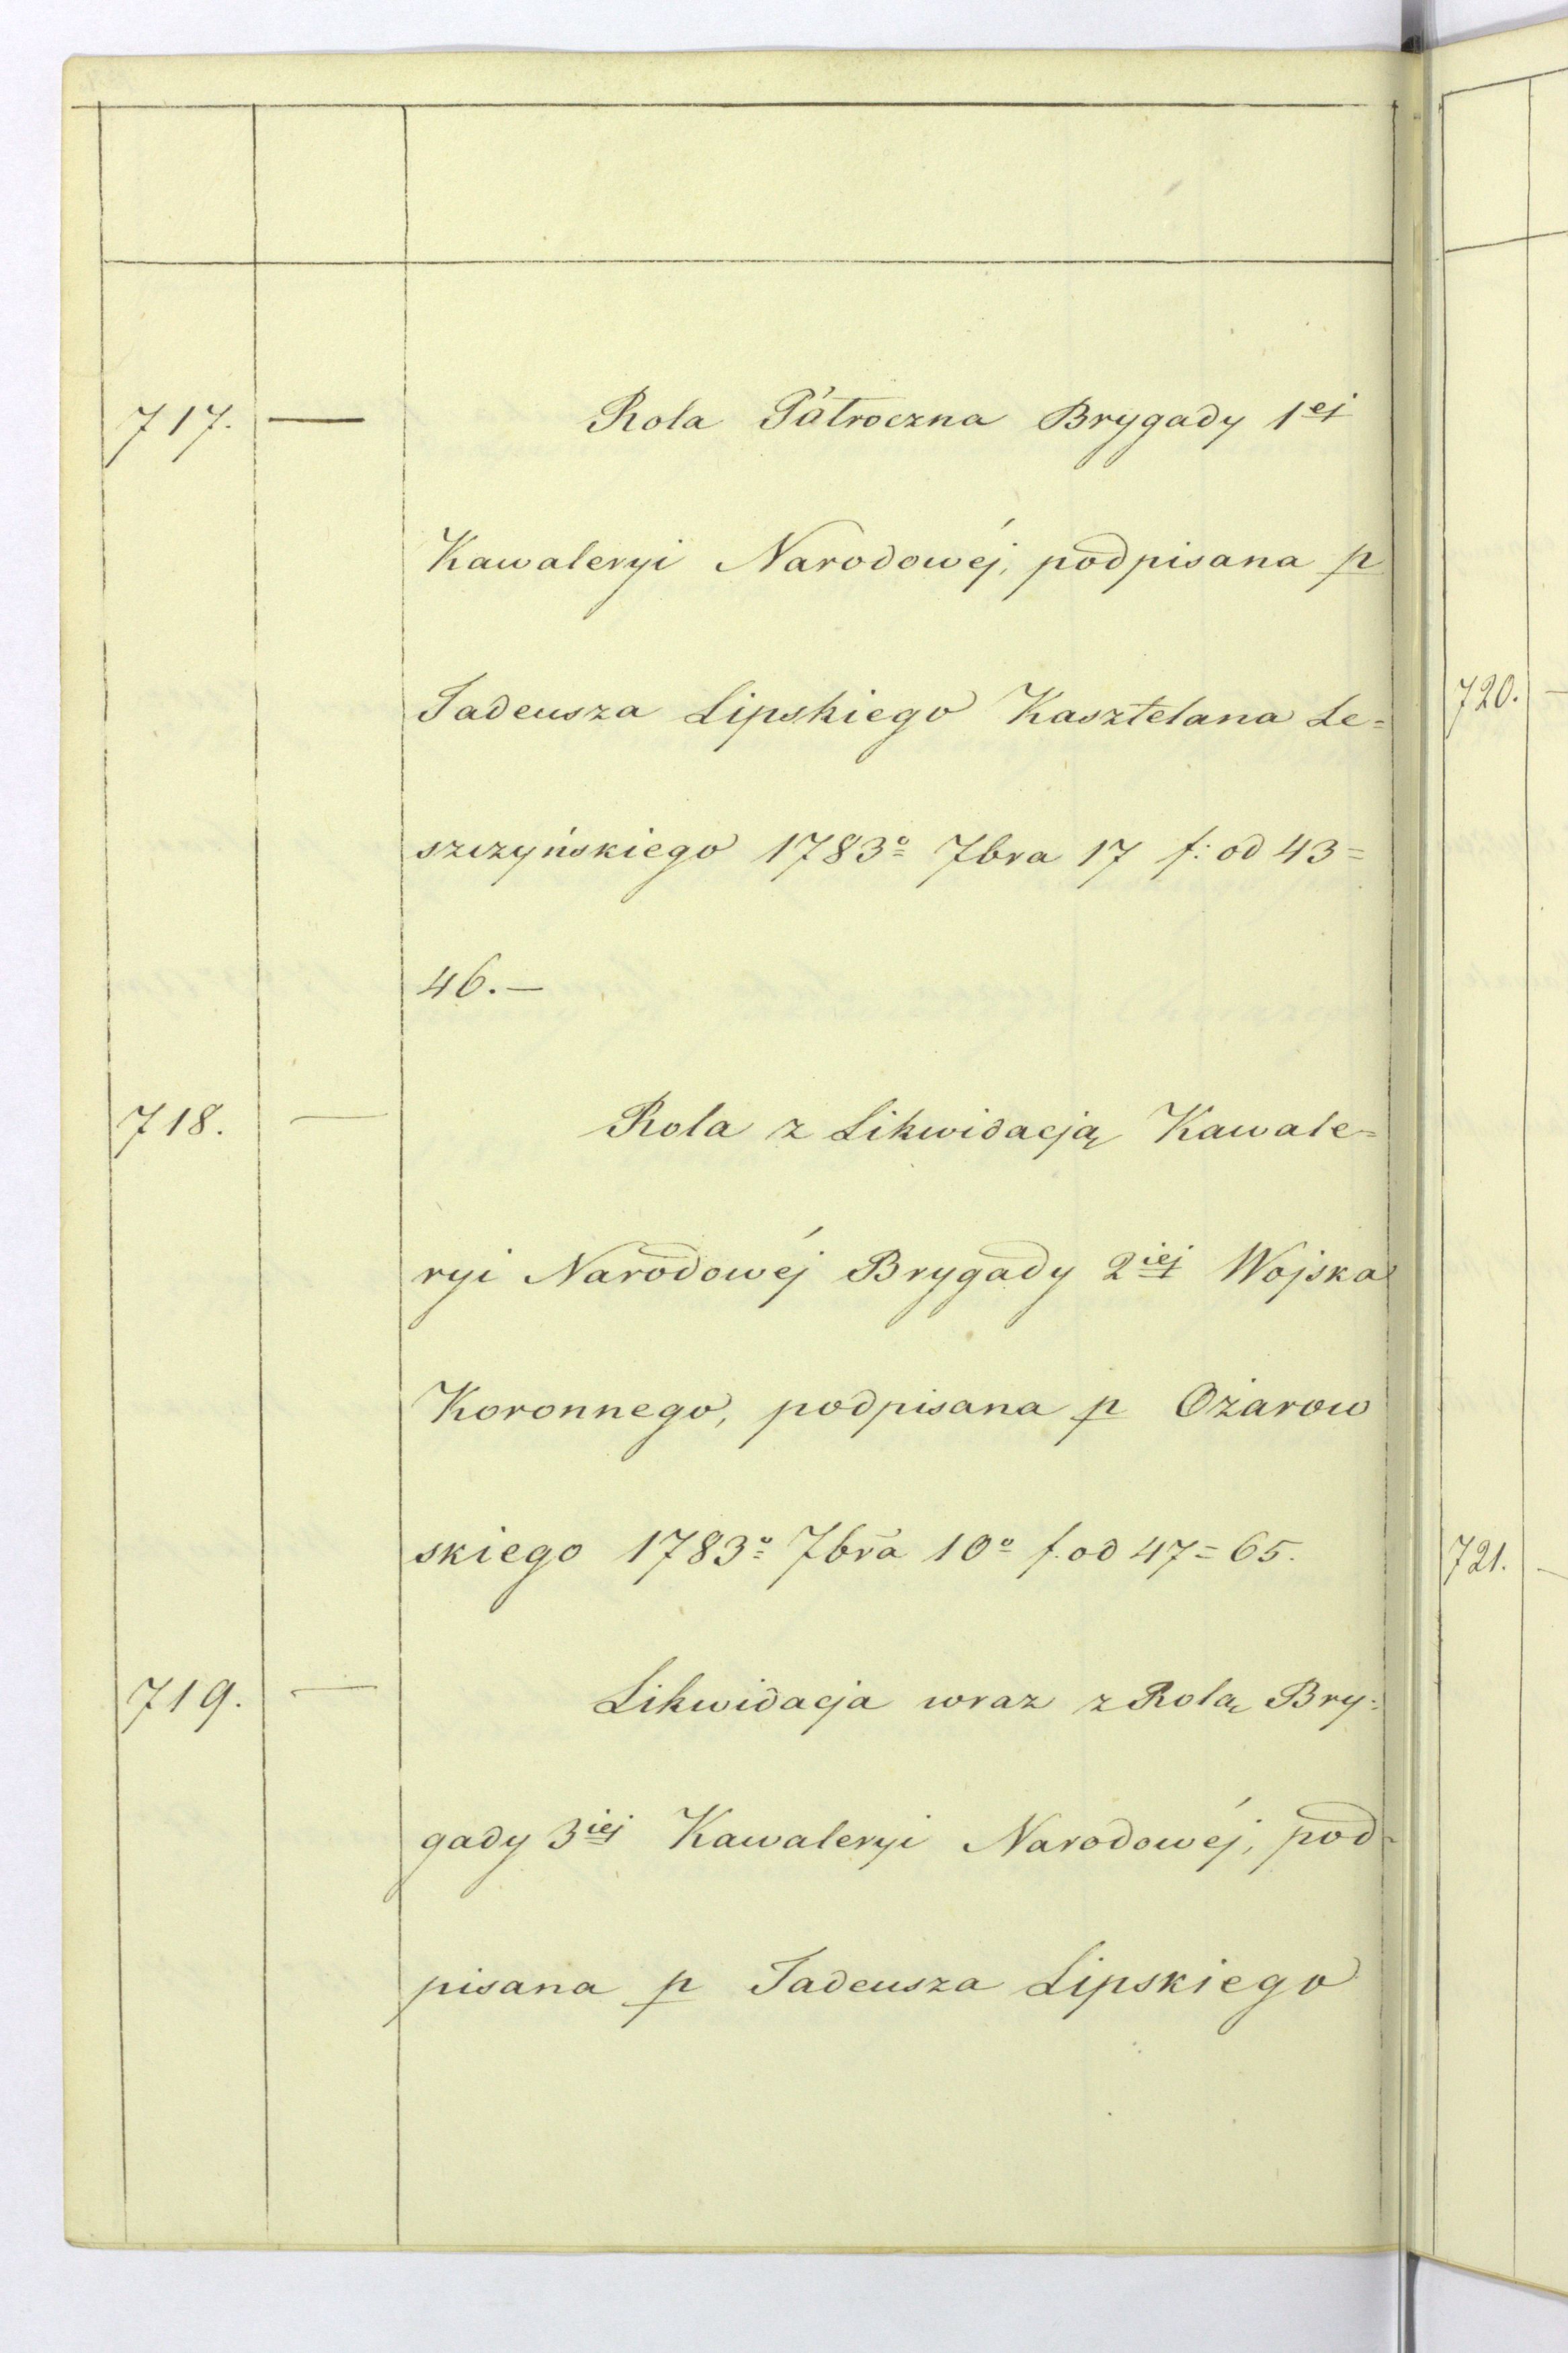 717. — Rola Półroczna Brygady 1ej
Kawaleryi Narodowéj, podpisana p
Tadeusza Lipskiego Kasztelana Le=
szczyńskiego 1783o 7bra 17 f: od 43=
46.—
718. — Rola z Likwidacją Kawale=
ryi Narodowéj Brygady 2iej Wojska
Koronnego, podpisana p Ożarow
skiego 1783o 7bra 10o f. od 47=65.
719. — Likwidacja wraz z Rolą Bry=
gady 3iej Kawaleryi Narodowéj, pod=
pisana p Tadeusza Lipskiego
720. —
721. —